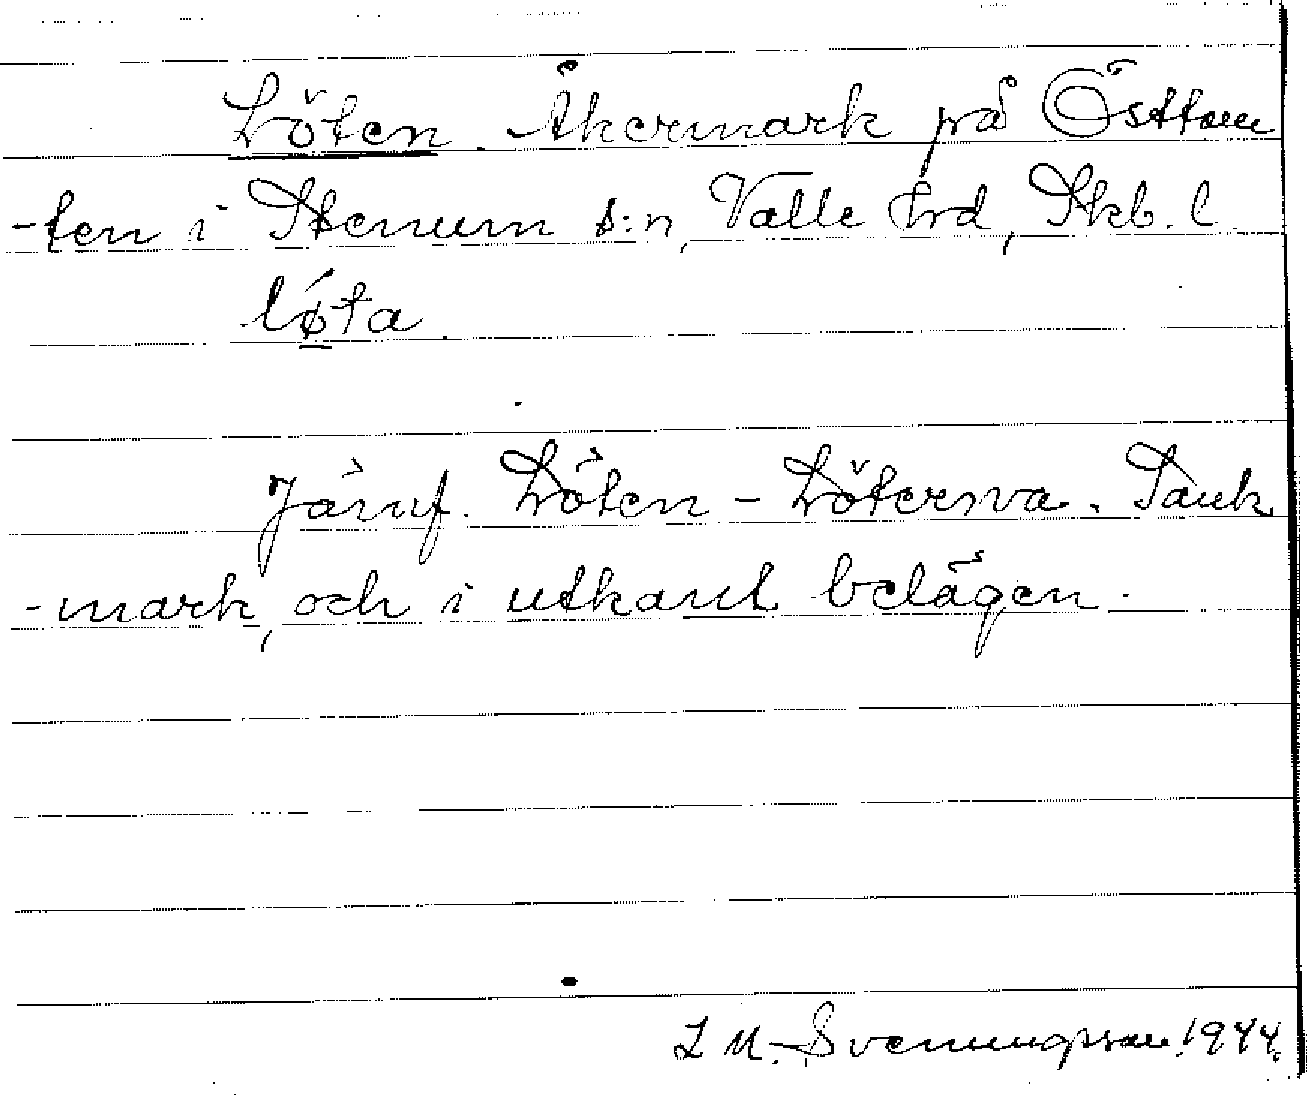 Löten. Åkermark på Östtom
-ten i Stenum s:n, Valle hrd, Skb. l
løta
Jämf. Löten - Löterna. Tank
-mark, och i utkant belägen.
L M. Svenungsson 1944.